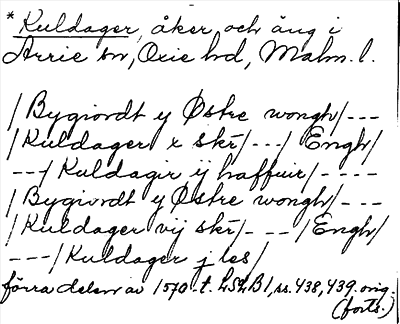 * Kuldager, åker och äng i
Arrie sn, Oxie hd, Malm. l.
/Bygiordt y Østre wongh/---
/Kuldager x skr̄/---/Engh/
---/Kuldagir ij haffuir/----
/Bygiordt y Østre wongh/---
/Kuldager vij skr̄/---/Engh/
---/Kuldager j les/
förra delen av 1570.t. LSLB1, ss. 438, 439. orig.
(forts.)